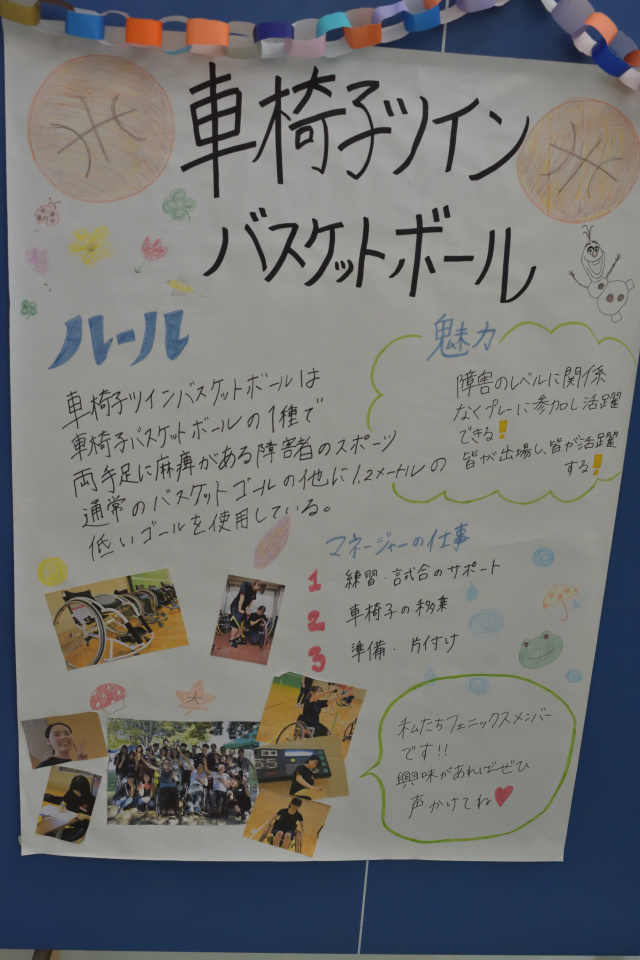 車椅子ツイン
バスケットボール
ルール
車椅子ツインバスケットボールは
車椅子バスケットボールの1種で
両手足に麻痺がある障害者のスポーツ
通常のバスケットゴールの他に1.2メートルの
低いゴールを使用している。
魅力
障害のレベルに関係
なくプレーに参加し活躍
できる!
皆が出場し、皆が活躍
する!
マネージャーの仕事
1 練習・試合のサポート
2 車椅子の移乗
3 準備・片付け
私たちフェニックスメンバー
です!!
興味があればぜひ
声かけてね♥